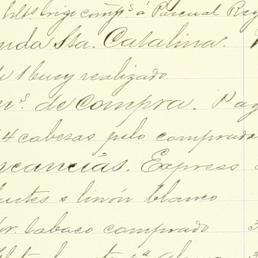 hlts. trigo comps. á Pascual Reg
nda Sta. Catalina.
e 1 buey realizado
ns. de Compra. Pag
4 cabezas pelo comprada
cancías. Express
ustes s linón blanco
or. tabaco comprado